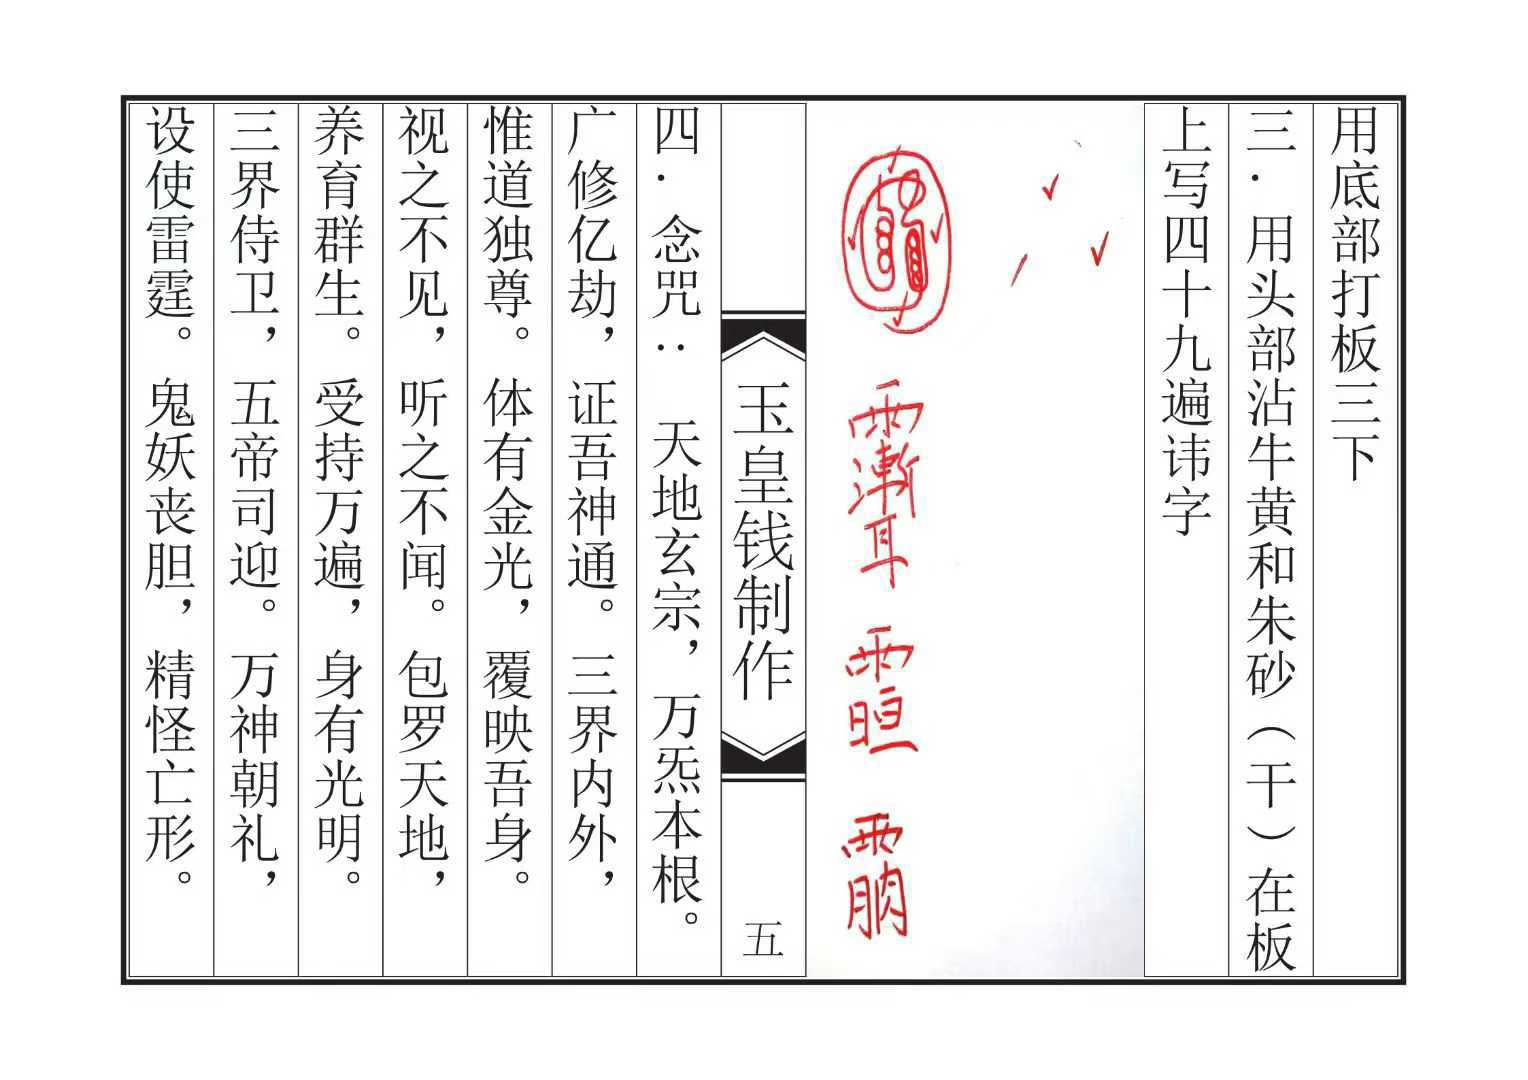 用底部打板三下
三·用头部沾牛黄和朱砂（干）在板
上写四十九遍讳字
玉皇钱制作
五
四·念咒：天地玄宗，万炁本根。
广修亿劫，证吾神通。三界内外，
惟道独尊。体有金光，覆映吾身。
视之不见，听之不闻。包罗天地，
养育群生。受持万遍，身有光明。
三界侍卫，五帝司迎。万神朝礼，
设使雷霆。鬼妖丧胆，精怪亡形。